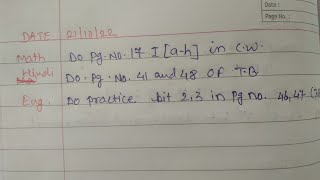 Date :
Page No. :
DATE 21/10/22
Math Do Pg. No. 17 I [a-h] in C.W.
Hindi Do. Pg. No. 41 and 48 of T.B
Eng. Do practice bit 2,3 in Pg no. 46,47